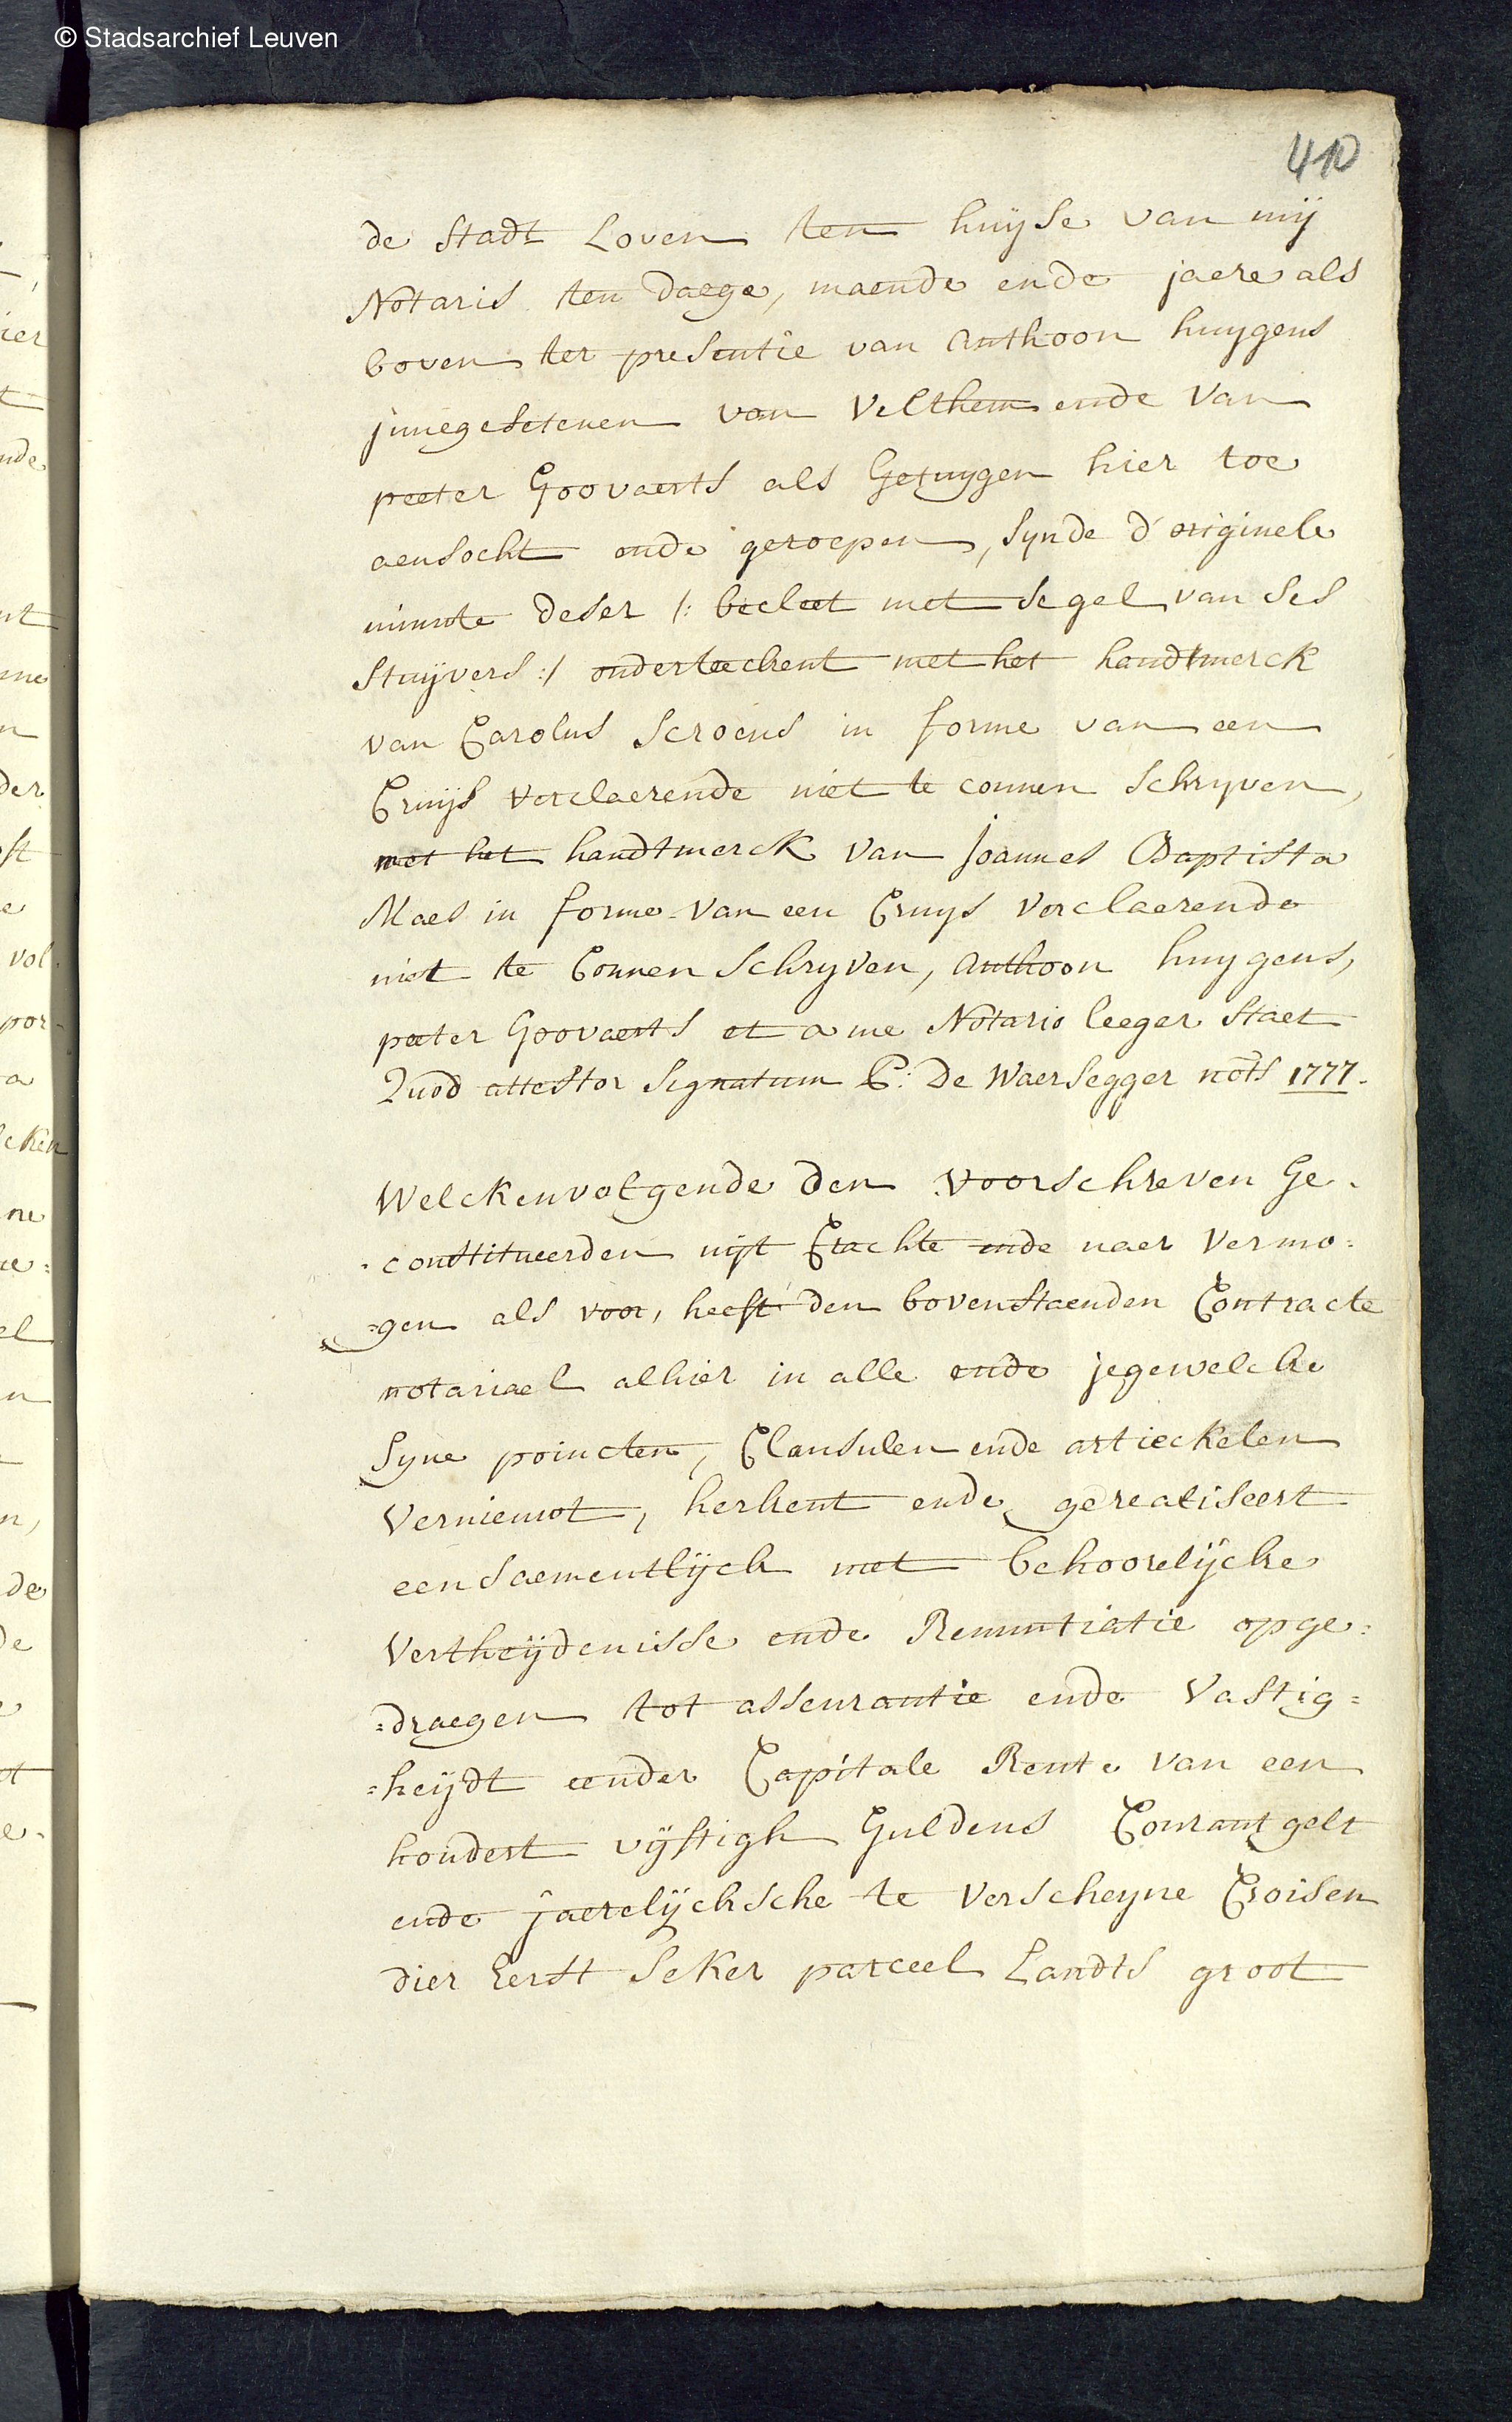 © Stadsarchief Leuven
410
de Stadt Loven ten huÿse van mÿ
Notaris ten daege, maende ende jaere als
boven ter presentie van Anthoon huygens
innegesetenen van Velthem ende van
peeter Goovaerts als Getuygen hier toe
aensocht ende geroepen, synde d'originele
minute deser /: becleet met segel van ses
stuÿvers :/ onderteekent met het handtmerck
van Carolus Scroens in forme van een
Cruÿs verclaerende niet te connen schryven,
met het handtmerck van Joannes Baptista
Maes in forme van een Cruys verclaerende
niet te Connen schryven, Anthoon huygens,
peeter Goovaerts et a me Notario leeger staet
Quod attestor signatum C: De Waersegger nots 1777.
Welckenvolgende den voorschreven Ge-
-constitueerden uÿt Crachte ende naer vermo=
=gen als voor, heeft den bovenstaenden Contracte
notariael alhier in alle ende jegewelcke
syne poincten, Clausulen ende artieckelen
vernieuwt, herkent ende gerealiseert
eensaementlÿck met behoorelÿcke
vertheÿdenisse ende Renuntiatie opge=
=draegen tot asseurantie ende vastig=
=heÿdt eender Capitale Rente van een
hondert vÿftigh Guldens Courant gelt
ende jaerelÿcksche te verscheyne Croisen
dier Eerst seker parceel Landts groot